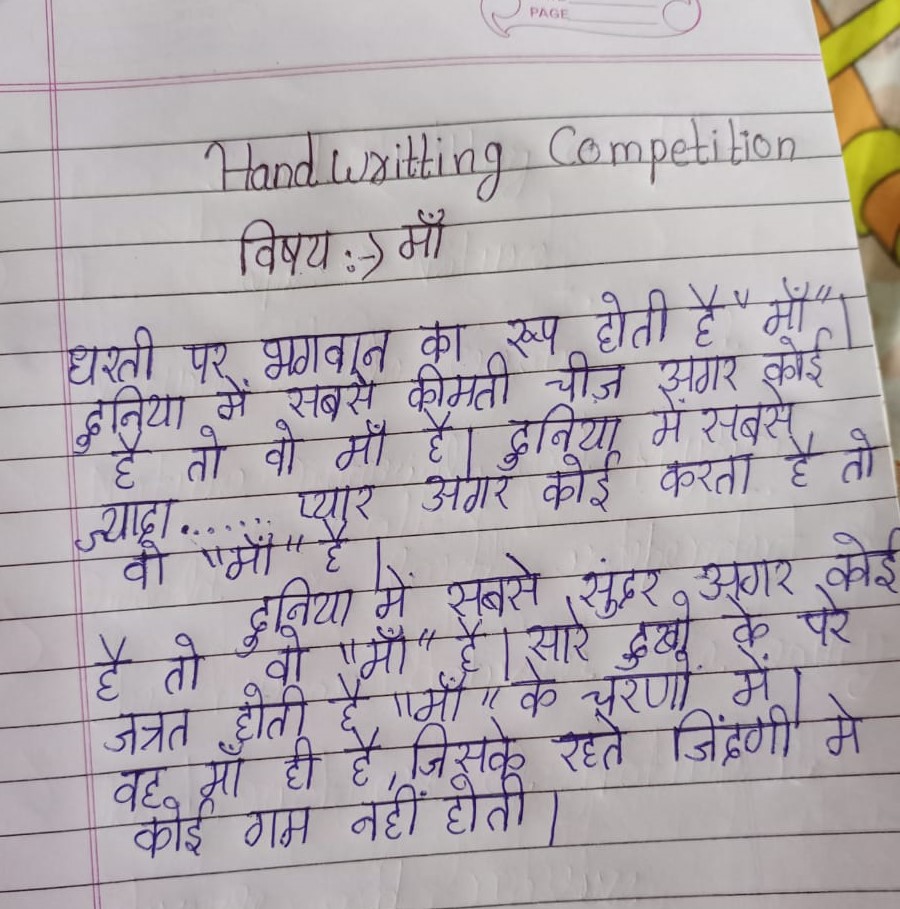 PAGE
Handwritting Competition
विषय :-> माँ
धरती पर भगवान का रूप होती है "माँ"।
दुनिया में सबसे कीमती चीज़ अगर कोई
है तो वो माँ है। दुनिया में सबसे
ज्यादा....... प्यार अगर कोई करता है तो
वो "माँ" है।
दुनिया में सबसे सुंदर अगर कोई
है तो वो "माँ" है। सारे दुखो के परे
जन्नत होती है "माँ" के चरणों में।
वह माँ ही है, जिसके रहते जिंदगी मे
कोई गम नहीं होती।